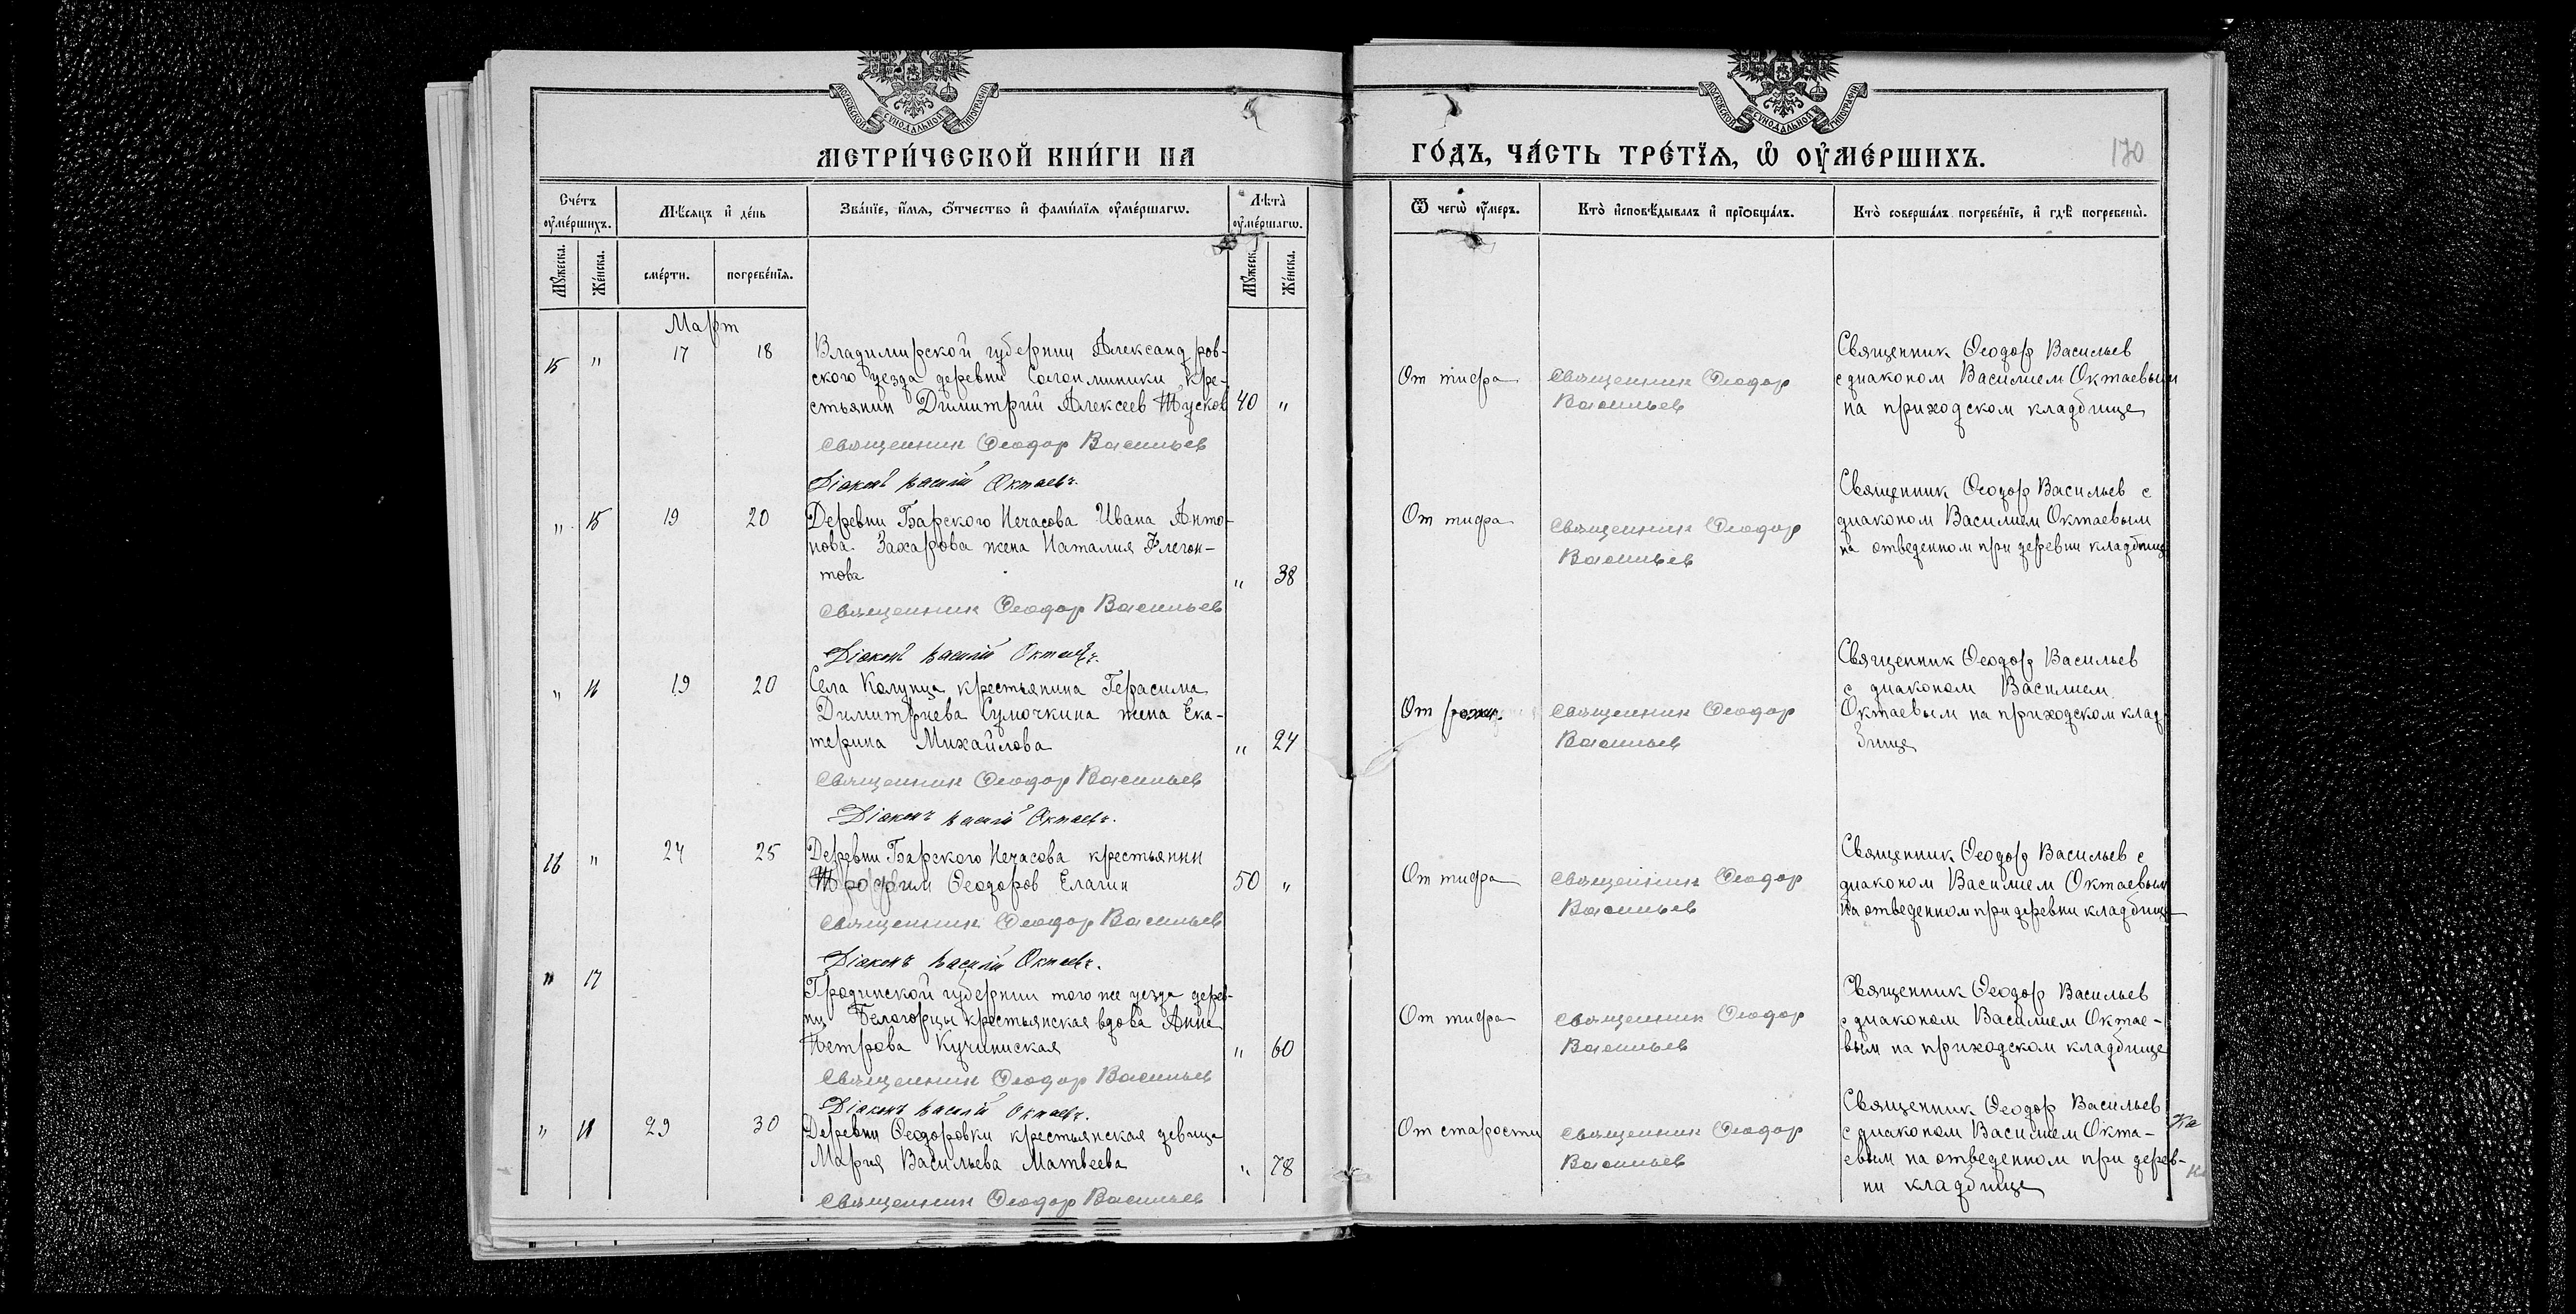 МЕТРИ́ЧЕСКОЙ КНИ́ГИ НА
ГО́ДЪ, ЧА́СТЬ ТРЕ́ТЇѦ, Ѡ҆ ОУ҆МЕ́РШИХЪ.
170
Сче́тъ оу҆ме́ршихъ.
Мѣ́сяцъ и҆ де́нь
Зва́нїе, и҆́мѧ, ѻ҆́тчество и҆ фами́лїѧ оу҆ме́ршагѡ.
Лѣ́та̀ оу҆ме́ршагѡ.
Ѿ чегѡ̀ оу҆́меръ.
Кто̀ и҆сповѣ́дывалъ и҆ прїѡбща́лъ.
Кто̀ соверша́лъ погребе́нїе, и҆ гдѣ̀ погребены̀.
Мꙋ́жеска.
Же́нска.
сме́рти.
погребе́нїѧ.
Мꙋ́жеск.
Же́нска.
Март
15 " 17 18
Владимирской губернии Александров-
ского уезда деревни кре-
стьянин Димитрий Алексеев Тусков 40 "
Священник Ѳеодор Васильев
Діаконъ Василій Октаевъ.
От тифа
Священник Ѳеодор
Васильев
Священник Ѳеодор Васильев
с диаконом Василием Октаевым
на приходском кладбище
" 15 19 20
Деревни Барского Нечасова Ивана Анто-
нова Захарова жена Наталия Флегон-
това " 38
Священник Ѳеодор Васильев
Діаконъ Василій Октаевъ.
От тифа
Священник Ѳеодор
Васильев
Священник Ѳеодор Васильев с
диаконом Василием Октаевым
на отведенном при деревни кладбище
" 16 19 20
Села Колунца крестьянина Герасима
Димитриева Сумочкина жена Ека-
терина Михайлова " 24
Священник Ѳеодор Васильев
Діаконъ Василій Октаевъ.
От
Священник Ѳеодор
Васильев
Священник Ѳеодор Васильев
с диаконом Василием
Октаевым на приходском клад-
бище
16 " 24 25
Деревни Барского Нечасова крестьянин
Трофим Ѳеодоров Елагин 50 "
Священник Ѳеодор Васильев
Діаконъ Василій Октаевъ.
От тифа
Священник Ѳеодор
Васильев
Священник Ѳеодор Васильев с
диаконом Василием Октаевым
на отведенном при деревни кладбище
" 17
Гродинской губернии того же уезда дерев-
ни Белогорцы крестьянская вдова Анна
Петрова Кучинская " 60
Священник Ѳеодор Васильев
Діаконъ Василій Октаевъ.
От тифа
Священник Ѳеодор
Васильев
Священник Ѳеодор Васильев
с диаконом Василием Октае-
вым на приходском кладбище
" 18 29 30
Деревни Ѳеодоровки крестьянская девица
Мария Васильева Матвеева " 78
Священник Ѳеодор Васильев
От старости
Священник Ѳеодор
Васильев
Священник Ѳеодор Васильев
с диаконом Василием Окта-
евым на отведенном при дерев-
ни кладбище